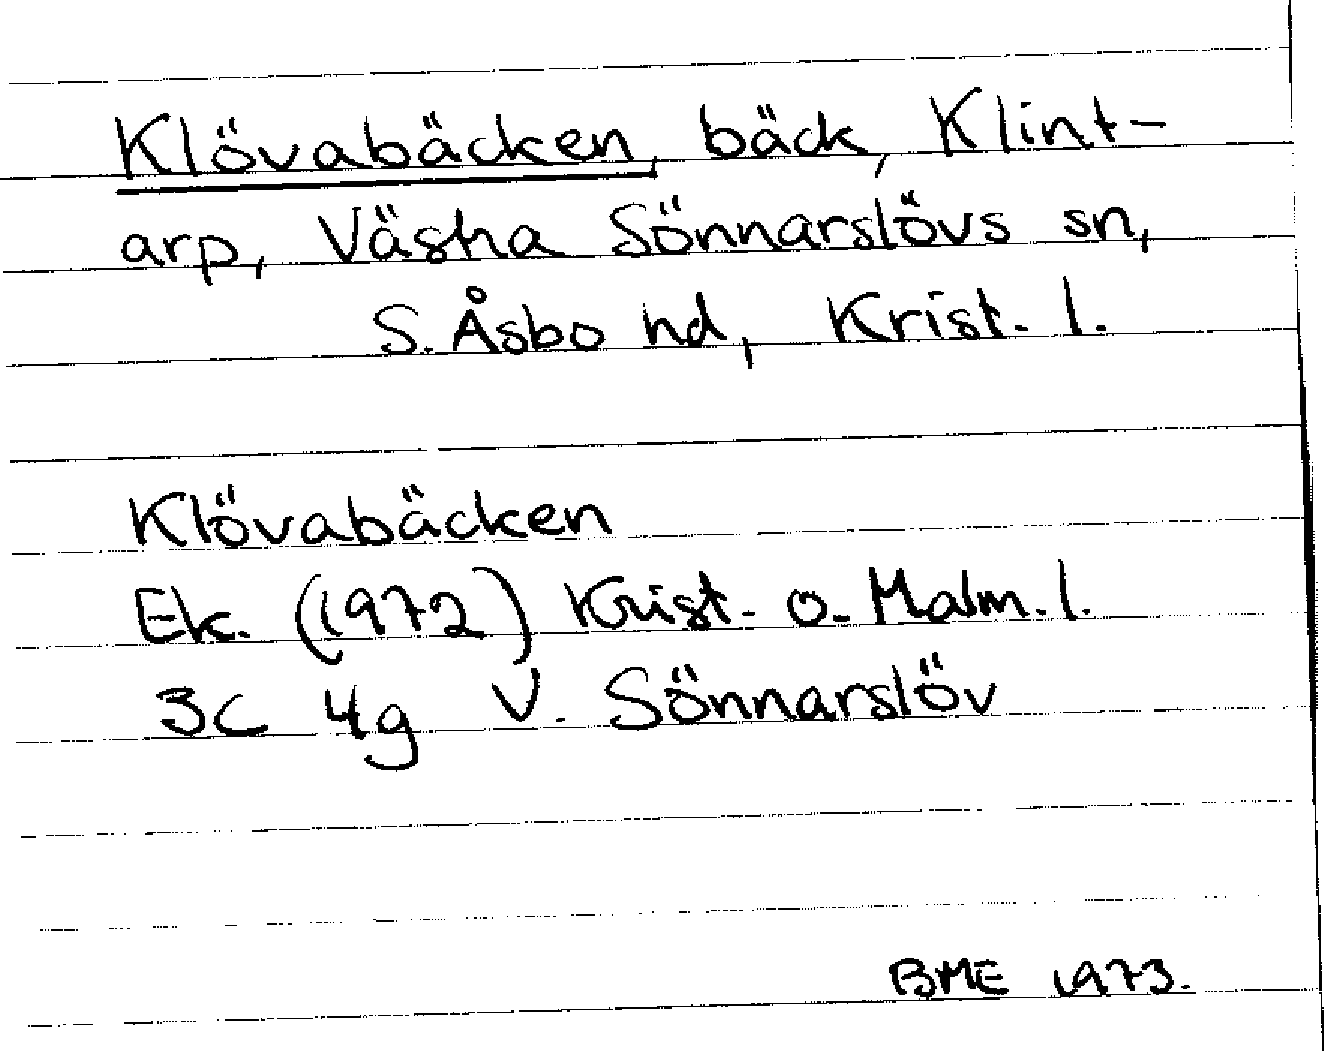 Klövabäcken, bäck, Klint-
arp, Västra Sönnarslövs sn,
S. Åsbo hd, Krist. l.
Klövabäcken
Ek. (1972) Krist. o. Malm. l.
3C 4g V. Sönnarslöv
BME 1973.